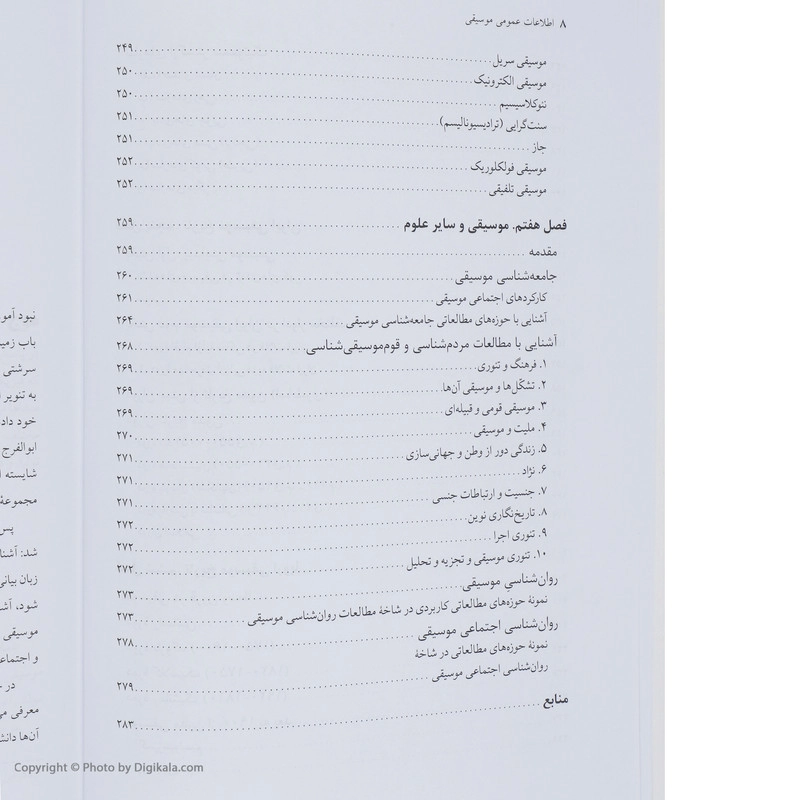 ۸ اطلاعات عمومی موسیقی
موسیقی سریل ۲۴۹
موسیقی الکترونیک ۲۵۰
نئوکلاسیسیم ۲۵۰
سنت‌گرایی (ترادیسیونالیسم) ۲۵۱
جاز ۲۵۱
موسیقی فولکلوریک ۲۵۲
موسیقی تلفیقی ۲۵۲
فصل هفتم. موسیقی و سایر علوم ۲۵۹
مقدمه ۲۵۹
جامعه‌شناسی موسیقی ۲۶۰
کارکردهای اجتماعی موسیقی ۲۶۱
آشنایی با حوزه‌های مطالعاتی جامعه‌شناسی موسیقی ۲۶۴
آشنایی با مطالعات مردم‌شناسی و قوم‌موسیقی‌شناسی ۲۶۸
۱. فرهنگ و تئوری ۲۶۹
۲. تشکّل‌ها و موسیقی آن‌ها ۲۶۹
۳. موسیقی قومی و قبیله‌ای ۲۶۹
۴. ملیت و موسیقی ۲۷۰
۵. زندگی دور از وطن و جهانی‌سازی ۲۷۱
۶. نژاد ۲۷۱
۷. جنسیت و ارتباطات جنسی ۲۷۱
۸. تاریخ‌نگاری نوین ۲۷۲
۹. تئوری اجرا ۲۷۲
۱۰. تئوری موسیقی و تجزیه و تحلیل ۲۷۲
روان‌شناسیِ موسیقی ۲۷۳
نمونهٔ حوزه‌های مطالعاتی کاربردی در شاخهٔ مطالعات روان‌شناسی موسیقی ۲۷۳
روان‌شناسی اجتماعی موسیقی ۲۷۸
نمونهٔ حوزه‌های مطالعاتی در شاخهٔ
روان‌شناسی اجتماعی موسیقی ۲۷۹
منابع ۲۸۳
نبود
باب
سرشتی
به تنویر
خود
ابوالفرج
شایسته
مجموعهٔ
پس
شد:
زبان
شود،
موسیقی
و
در
معرفی
آن‌ها
Copyright © Photo by Digikala.com